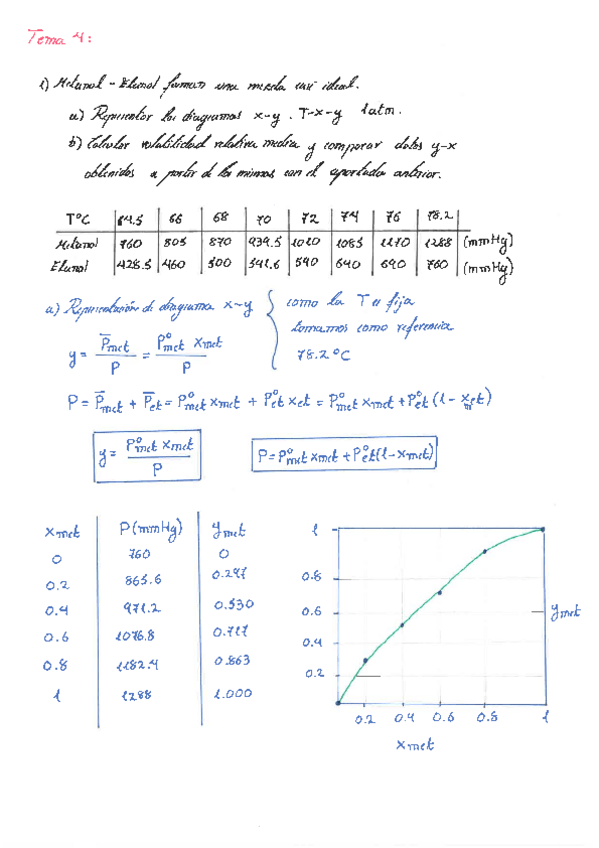 Tema 4:
1) Metanol - Etanol forman una mezcla casi ideal.
a) Representar los diagramas x-y. T-x-y 1atm.
b) Calcular volatilidad relativa media y comparar datos y-x
obtenidos a partir de los mismos con el apartado anterior.
T°C 64.5 66 68 70 72 74 76 78.2
Metanol 760 805 870 939.5 1020 1085 1170 1288 (mmHg)
Etanol 428.5 460 500 541.6 590 640 690 760 (mmHg)
a) Representación de diagrama x-y { como la T es fija
tomamos como referencia
78.2°C
y = P̄met / P = P°met xmet / P
P = P̄met + P̄et = P°met xmet + P°et xet = P°met xmet + P°et (1 - xmet)
y = P°met xmet / P
P = P°met xmet + P°et (1 - xmet)
xmet P(mmHg) ymet
0 760 0
0.2 865.6 0.297
0.4 971.2 0.530
0.6 1076.8 0.717
0.8 1182.4 0.863
1 1288 1.000
1
0.8
0.6
0.4
0.2
ymet
0.2 0.4 0.6 0.8 1
xmet